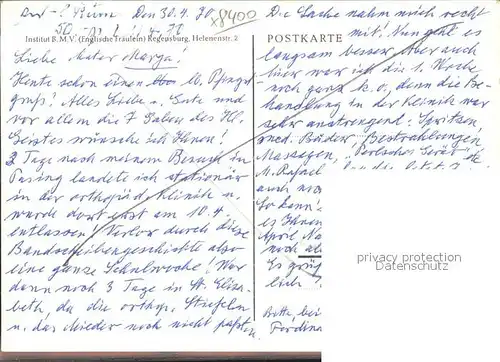 Den 30.4.70
x8400
Institut B.M.V. (Englische Fräulein) Regensburg, Helenenstr. 2
Liebe Mater Marga!
Heute schon einen lb. Pfingst
gruß! Alles Liebe u. Gute und
vor allem die 7 Gaben des Hl.
Geistes wünsche ich Ihnen!
2 Tage nach meinem Besuch in
Pasing landete ich stationär
in der orthopäd. Klinik u.
wurde dort erst am 10.4.
entlassen. Verlor durch diese
Bandscheibengeschichte also
eine ganze Schulwoche! War
dann noch 3 Tage in St. Elisa-
beth, da die orthop. Stiefeln
u. das Mieder noch nicht paßten.
POSTKARTE
Die Sache nahm mich recht
mit! Nun geht es
langsam besser. Aber auch
hier war ich die 1. Woche
noch ganz k.o., denn die Be-
handlung in der Klinik war
sehr anstrengend: Spritzen,
med. Bäder, Bestrahlungen,
Massagen, "Perlsches Gerät" etc.
M. Rafael
auch no
So kann
es Ihnen
April Na
noch al
Es grü
lich I
Bitte, bei
Ferdina
privacy protection
Datenschutz